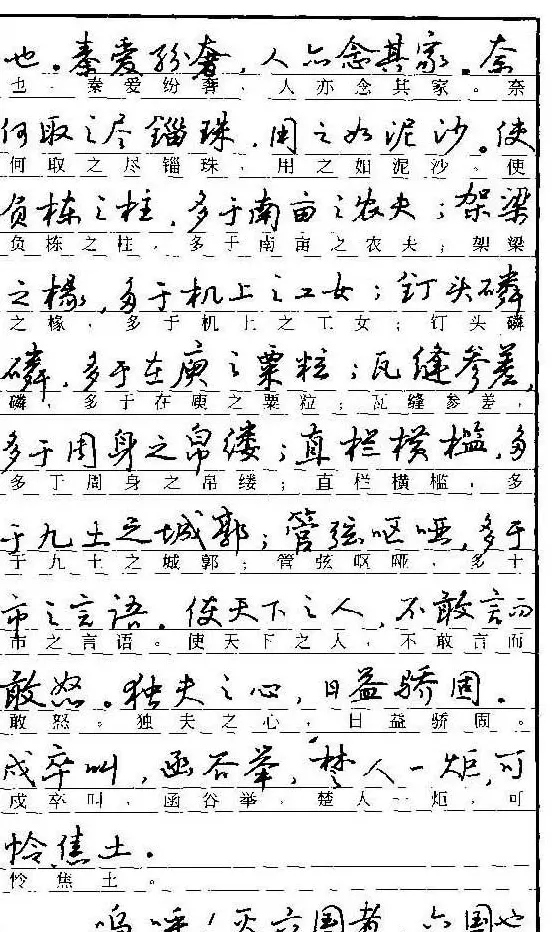 也。秦爱纷奢,人亦念其家。奈
也。秦爱纷奢,人亦念其家。奈
何取之尽锱珠,用之如泥沙。使
何取之尽锱珠,用之如泥沙。使
负栋之柱,多于南亩之农夫;架梁
负栋之柱,多于南亩之农夫;架梁
之椽,多于机上之工女;钉头磷
之椽,多于机上之工女;钉头磷
磷,多于在庾之粟粒;瓦缝参差,
磷,多于在庾之粟粒;瓦缝参差,
多于周身之帛缕;直栏横槛,多
多于周身之帛缕;直栏横槛,多
于九土之城郭;管弦呕哑,多于
于九土之城郭;管弦呕哑,多于
市之言语。使天下之人,不敢言而
市之言语。使天下之人,不敢言而
敢怒。独夫之心,日益骄固。
敢怒。独夫之心,日益骄固。
戍卒叫,函谷举,楚人一炬,可
戍卒叫,函谷举,楚人一炬,可
怜焦土。
怜焦土。
呜呼!灭六国者,六国也